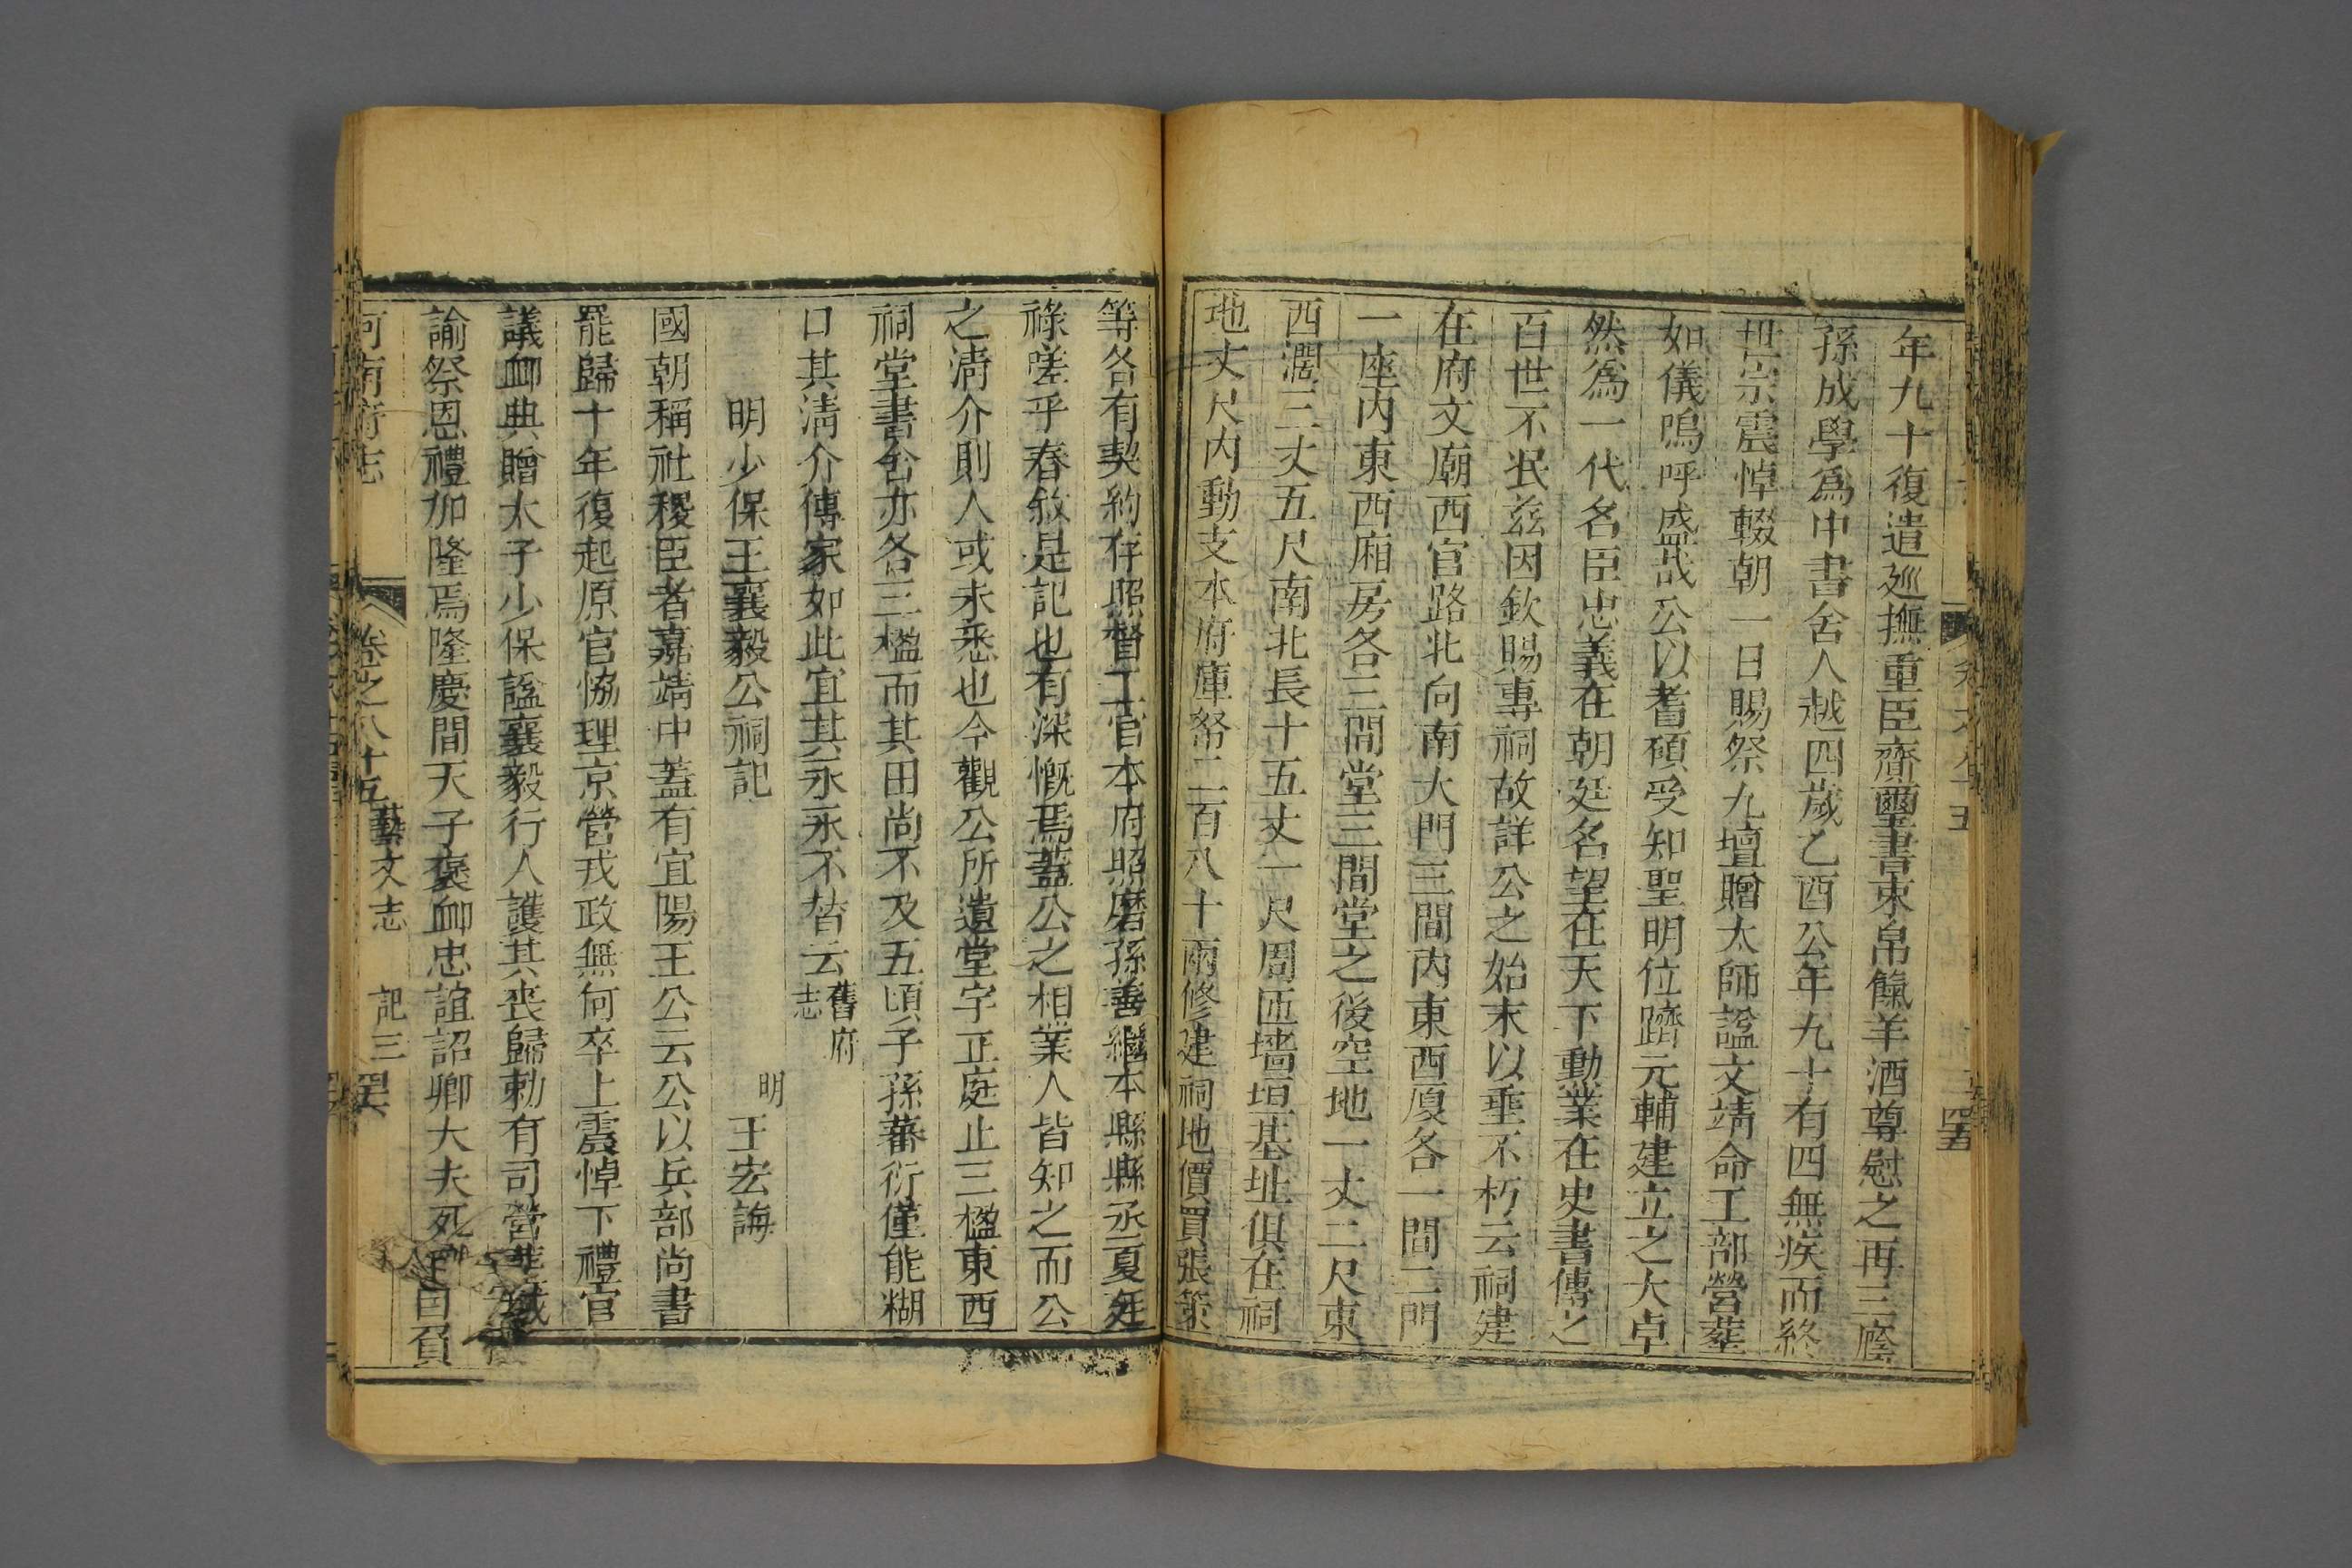 年九十復遣廵撫重臣齎璽書束帛餼羊酒尊慰之再三廕
孫成學爲中書舍人越四歲乙酉公年九十有四無疾而終
世宗震悼輟朝一日賜祭九壇贈太師諡文靖命工部營葬
如儀嗚呼盛哉公以耆碩受知聖明位躋元輔建立之大卓
然爲一代名臣忠義在朝廷名望在天下動業在史書傳之
百世不泯兹因欽賜專祠故詳公之始末以垂不朽云祠建
在府文廟西官路北向南大門三間内東西厦各一間二門
一座内東西廂房各三間堂三間堂之後空地一丈二尺東
西濶三丈五尺南北長十五丈一尺周匝墻垣基址俱在祠
地丈尺内動支本府庫帑二百八十兩修建祠地價買張策
等各有契約存照督工官本府照磨孫善繼本縣縣丞夏廷
祿嗟乎春敘是記也有深慨焉蓋公之相業人皆知之而公
之淸介則人或未悉也今觀公所遺堂宇正庭止三楹東西
祠堂書舍亦各三楹而其田尚不及五頃子孫蕃衍僅能糊
口其淸介傳家如此宜其永永不替云舊府志
明少保王襄毅公祠記 明 王宏誨
國朝稱社稷臣者嘉靖中蓋有宜陽王公云公以兵部尚書
罷歸十年復起原官恊理京營戎政無何卒上震悼下禮官
議䘏典贈太子少保諡襄毅行人護其喪歸勅有司營葬域
諭祭恩禮加隆焉隆慶間天子褒䘏忠誼詔卿大夫死 自負
河南府志 卷之八十五 藝文志 記三